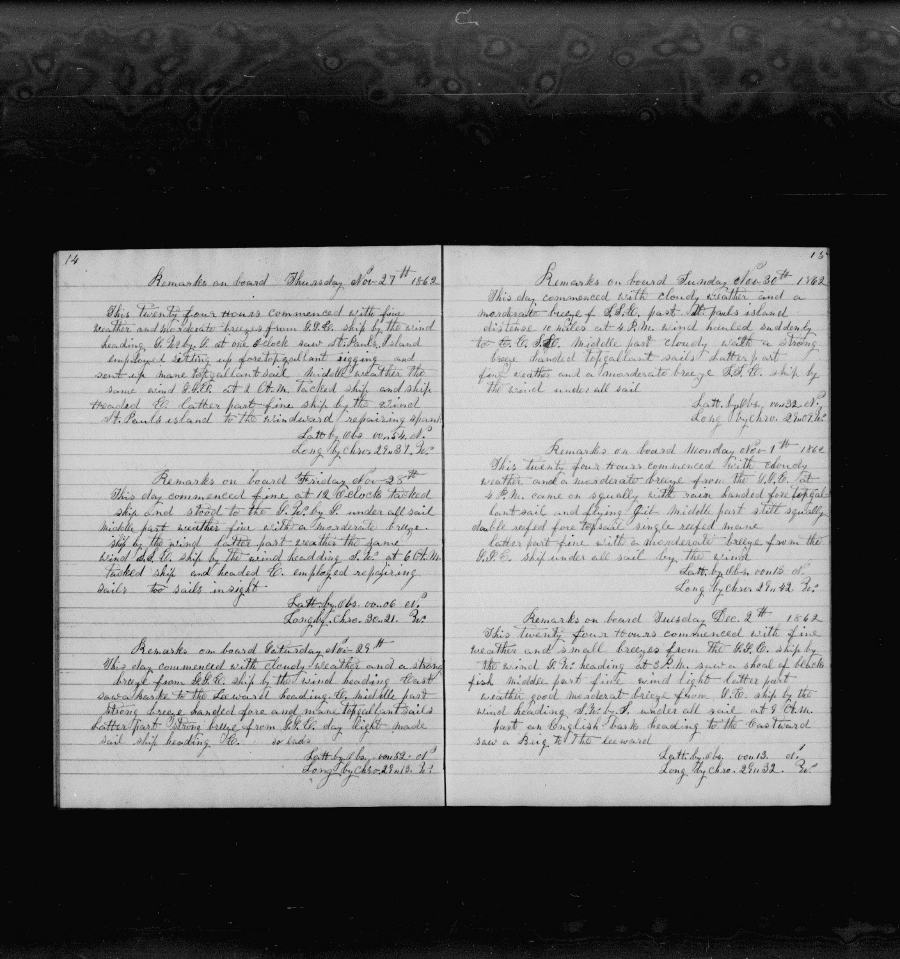 14
Remarks on board Thursday Nov 27th 1862
This twenty four Hours commenced with fine
weather and morderate breezes from S.S.E. ship by the wind
heading S.W. by S. at one Oclock saw St. Pauls Island
employed setting up fore topgallant rigging and
sent up mane topgallant sail middle weather the
same wind S.S.E. at 2 A.M. tacked ship and ship
headed E. latter part fine ship by the wind
St. Pauls island to the windward repairing spars
Latt by Obs 00 " 54. N.
Long by Chro 29 " 37. W.
Remarks on board Friday Nov 28th
This day commenced fine at 12 Oclock tacked
ship and stood to the S.W. by S. under all sail
middle part weather fine with a morderate breeze.
ship by the wind latter part weather the same
wind S.S.E. ship by the wind headding S.W. at 6 A.M.
tacked ship and headed E. employed repairing
sails too sails in sight
Latt. by Obs. 00 " 06 N.
Long by Chro. 30 " 21. W.
Remarks on board Saturday Nov 29th
This day commenced with cloudy weather and a strong
breeze from S.S.E. ship by the wind heading East
saw a barke to the Leward heading E. middle part
strong breeze handed fore and mane topgallant sails
latter part strong breeze from S.S.E. day light made
sail ship heading E. so ends
Latt by Obs. 00 " 52. N.
Long by Chro. 29 " 13. W.
15
Remarks on board Sunday Nov 30th 1862
This day commenced with cloudy weather and a
morderate breeze f S.S.E. past St. Pauls island
distense 10 miles at 4 P.M. wind hauled suddenly
to E. middle part cloudy with a strong
breze handed topgallant sails latter part
fine weather and a morderate breeze S.S.E. ship by
the wind under all sail
Latt. by Obs. 00 " 32. N.
Long by Chro. 29 " 09 W.
Remarks on board Monday Nov 1th 1862
This twenty four Hours commenced with cloudy
weather and a morderate breeze from the S.S.E. at
4 P.M. came on squally with rain handed fore topgal
lant sail and flying Jib middle part still squally
double reifed fore topsail single reifed mane
latter part fine with a morderate breeze from the
S.S.E. ship under all sail by the wind
Latt. by Obs. 00 " 15 N.
Long by Chro. 29 " 42 W.
Remarks on board Tuesday Dec. 2th 1862
This twenty four Hours commenced with fine
weather and small breezes from the S.S.E. ship by
the wind S.W. heading at 3 P.M. saw a shoal of black
fish middle part fine wind light latter part
weather good morderat breeze from S.E. ship by the
wind heading S.W. by S. under all sail at 9 A.M.
past an English bark heading to the Eastward
saw a Brig to the leeward
Latt. by Obs. 00 " 13. N.
Long by Chro. 29 " 32. W.